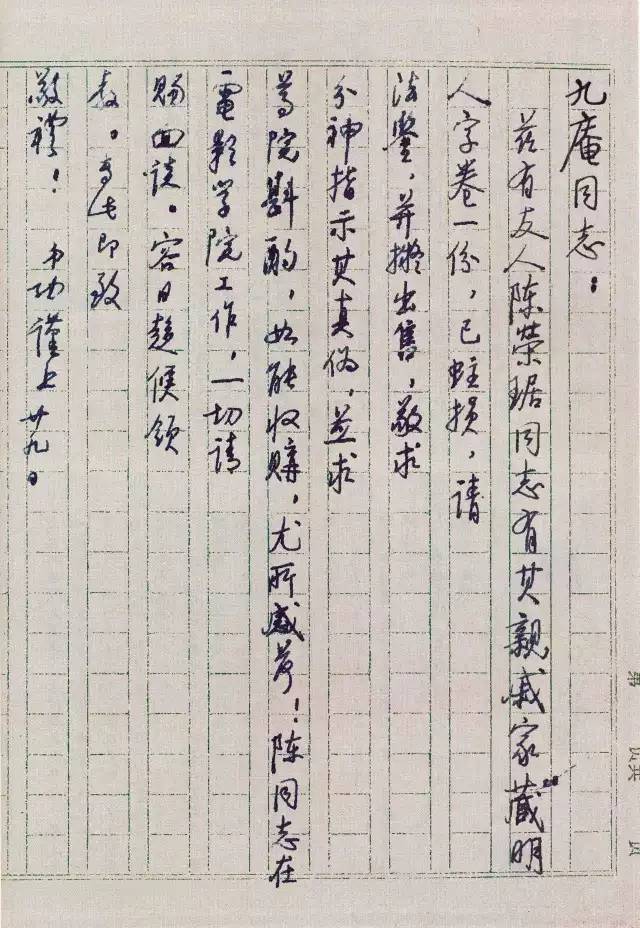 九庵同志：
兹有友人陈荣琚同志有其親戚家藏明
人字卷一份，已蛀损，请
法鉴，并擬出售，敬求
分神指示其真偽，並求
尊院斟酌，如能收購，尤所感荷！陈同志在
電影学院工作，一切请
賜面談。容日趨候領
教。专此即致
敬禮！ 功謹上 廿九日
第 页共 页